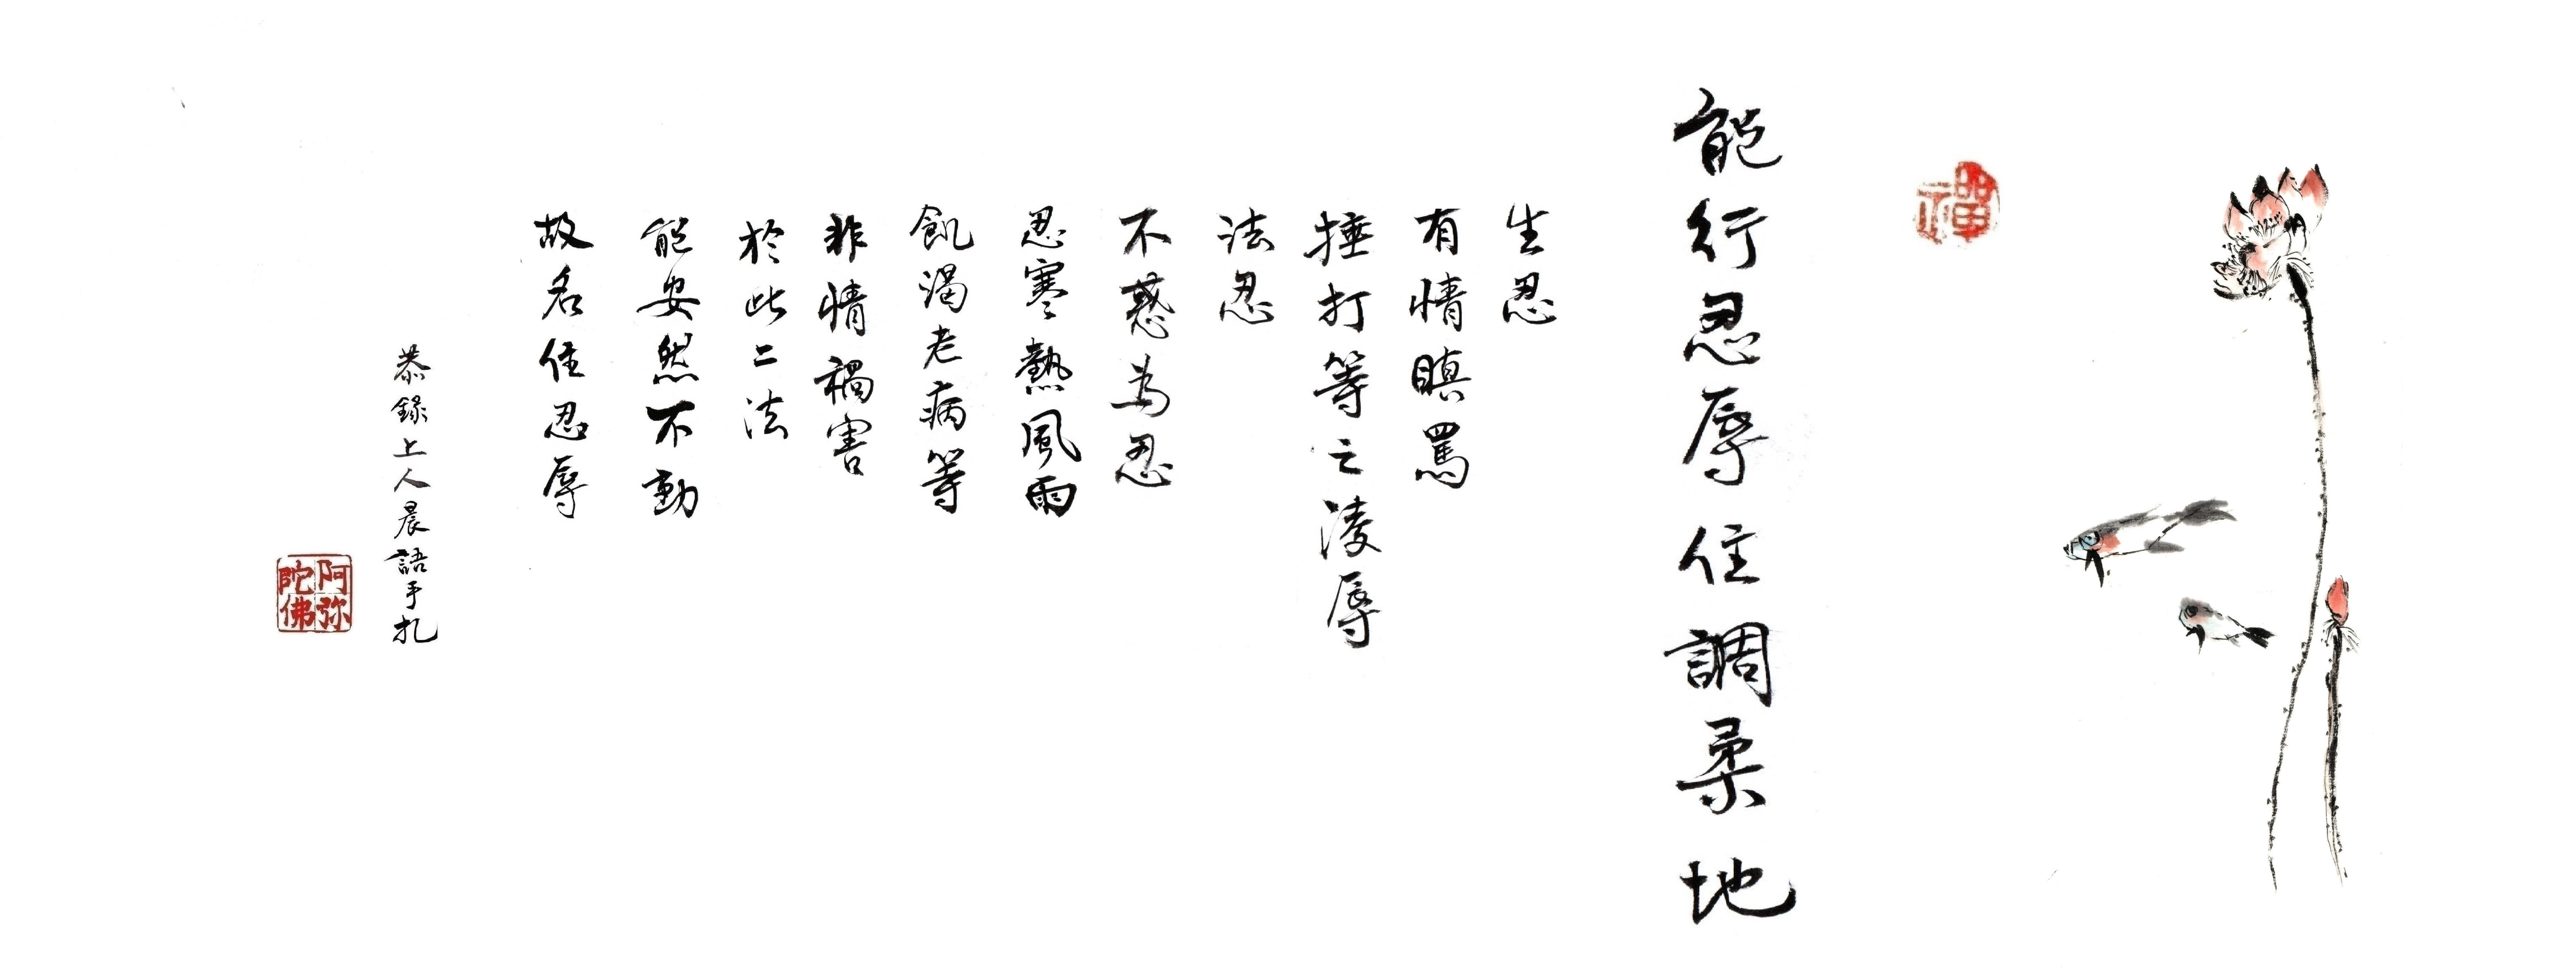 禪
能行忍辱住調柔地
生忍
有情瞋罵
捶打等之凌辱
法忍
不惑為忍
忍寒熱風雨
飢渴老病等
非情禍害
於此二法
能安然不動
故名住忍辱
恭錄上人晨語手扎
阿弥陀佛